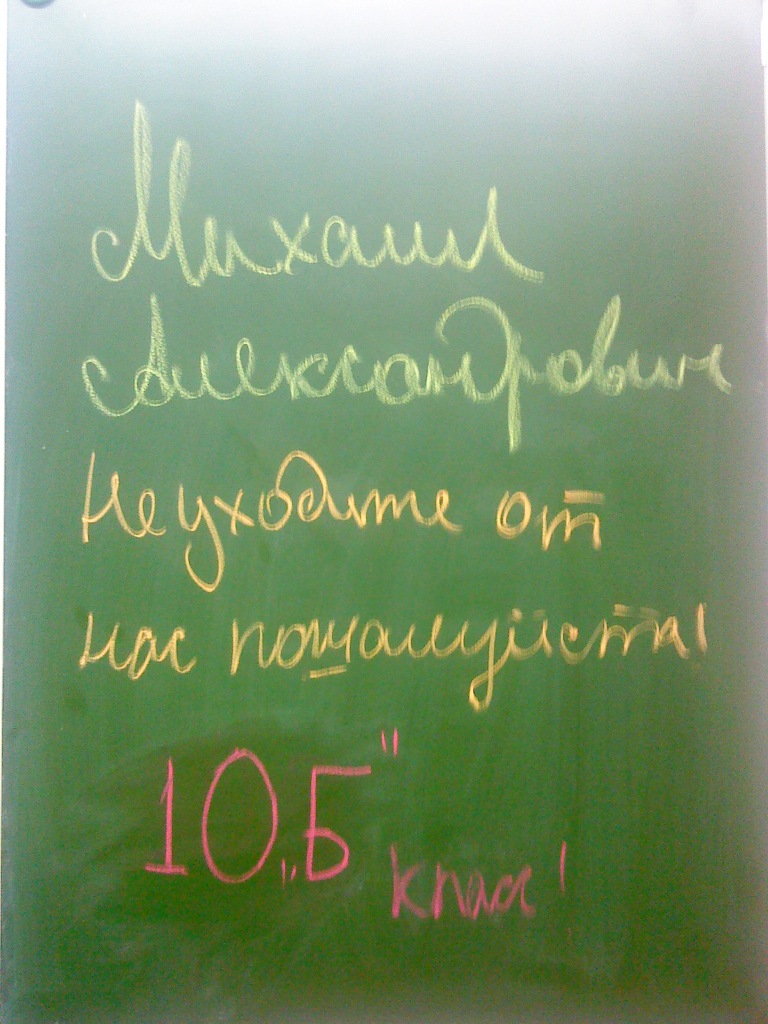 Михаил
Александрович
Не уходите от
нас пошалуйста!
10 „Б"
класс!